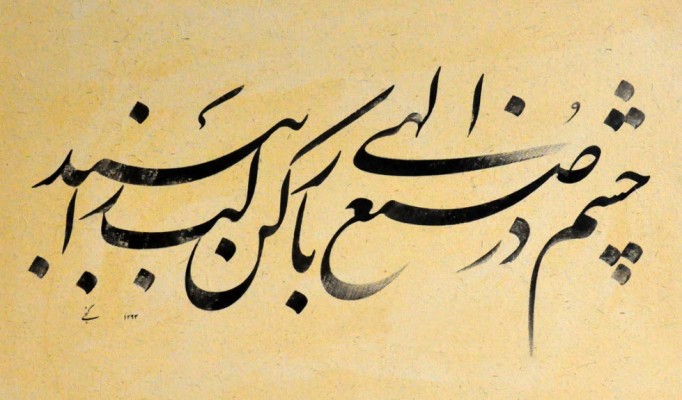 چشم در صُنع الهی باز کن لب را ببند
۱۳۹۳